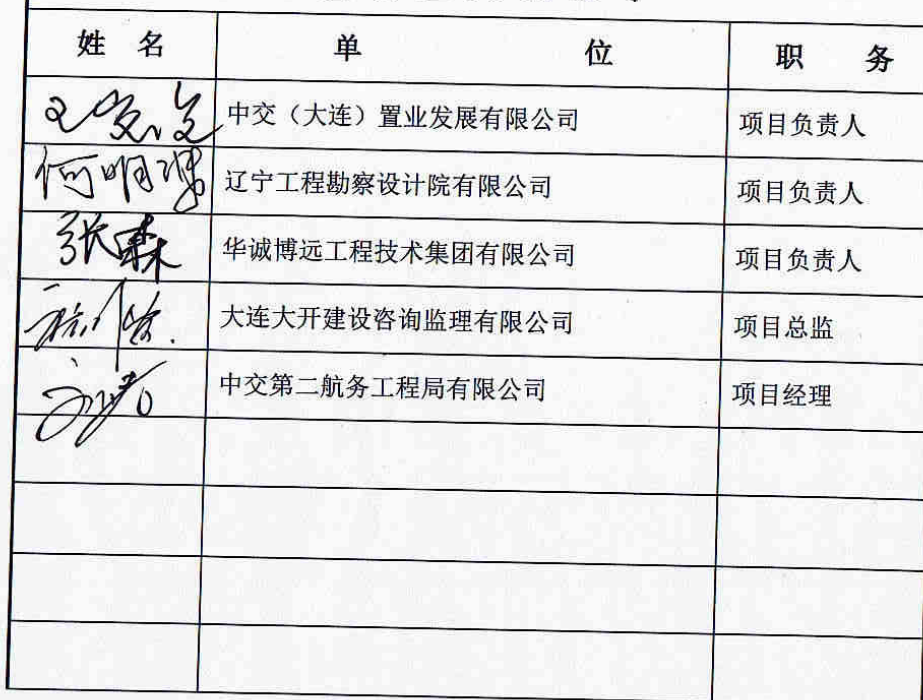 姓 名 单 位 职 务
中交（大连）置业发展有限公司 项目负责人
何明 辽宁工程勘察设计院有限公司 项目负责人
张森 华诚博远工程技术集团有限公司 项目负责人
大连大开建设咨询监理有限公司 项目总监
中交第二航务工程局有限公司 项目经理